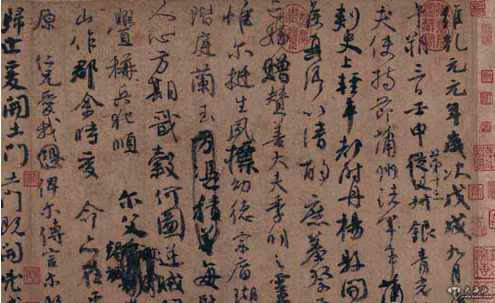 維乾元元年歲次戊戌九月
午朔三日壬申第十三從父叔銀青光
夫使持節蒲州諸軍事蒲
刺史上輕車都尉丹楊縣開
侯真卿以清酌庶羞祭
亡姪贈贊善大夫季明之靈
惟爾挺生夙標幼德宗廟瑚
階庭蘭玉方憑積善每
人心方期戩穀何圖逆賊
釁稱兵犯順爾父
山作郡余時受命亦在
原仁兄愛我俾爾傳言爾既
歸止爰開土門土門既開凶威